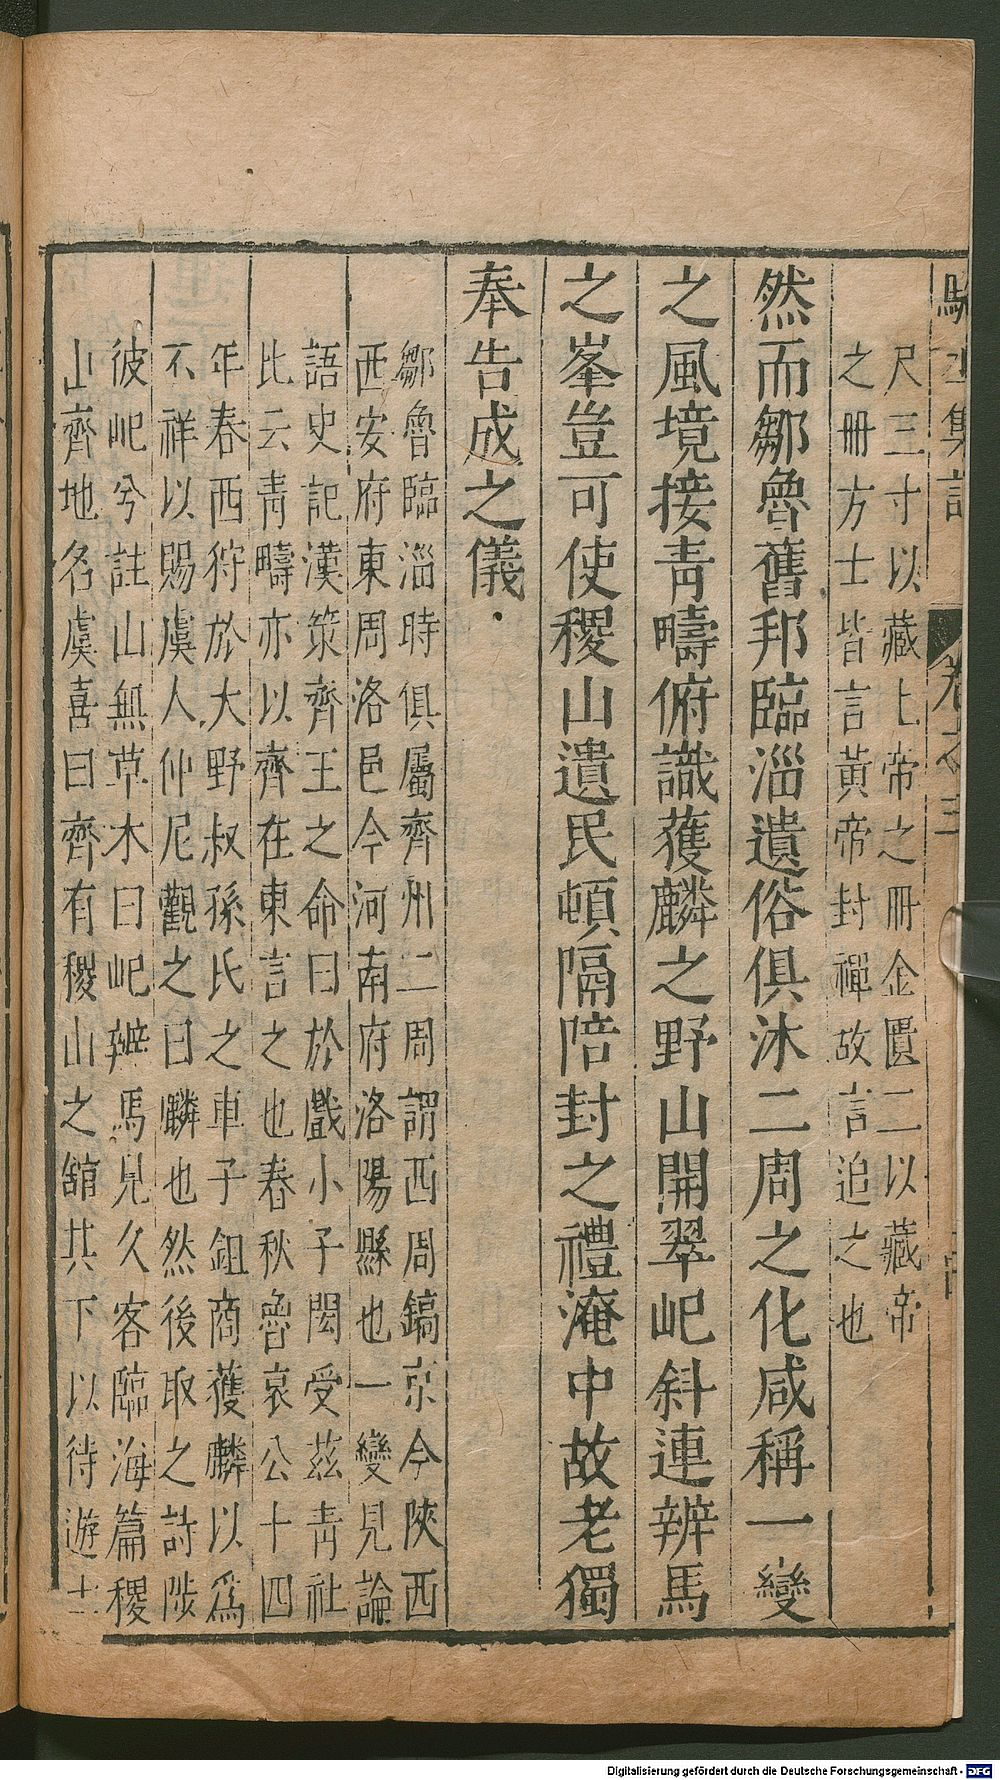 尺三寸以藏上帝之冊金匱二以藏帝
之冊方士皆言黃帝封禪故言追之也
然而鄒魯舊邦臨淄遺俗俱沐二周之化咸稱一變
之風境接青疇俯識獲麟之野山開翠屺斜連辨馬
之峯豈可使稷山遺民頓隔陪封之禮淹中故老獨
奉告成之儀.
鄒魯臨淄時俱屬齊州二周謂西周鎬京今陝西
西安府東周洛邑今河南府洛陽縣也一變見論
語史記漢策齊王之命曰於戲小子閎受茲青社
比云青疇亦以齊在東言之也春秋魯哀公十四
年春西狩於大野叔孫氏之車子鉏商獲麟以為
不祥以賜虞人仲尼觀之曰麟也然後取之詩陟
彼屺兮註山無草木曰屺辨馬見久客臨海篇稷
山齊地名虞喜曰齊有稷山之舘其下以待遊士
集註
卷之三
Digitalisierung gefördert durch die Deutsche Forschungsgemeinschaft - DFG